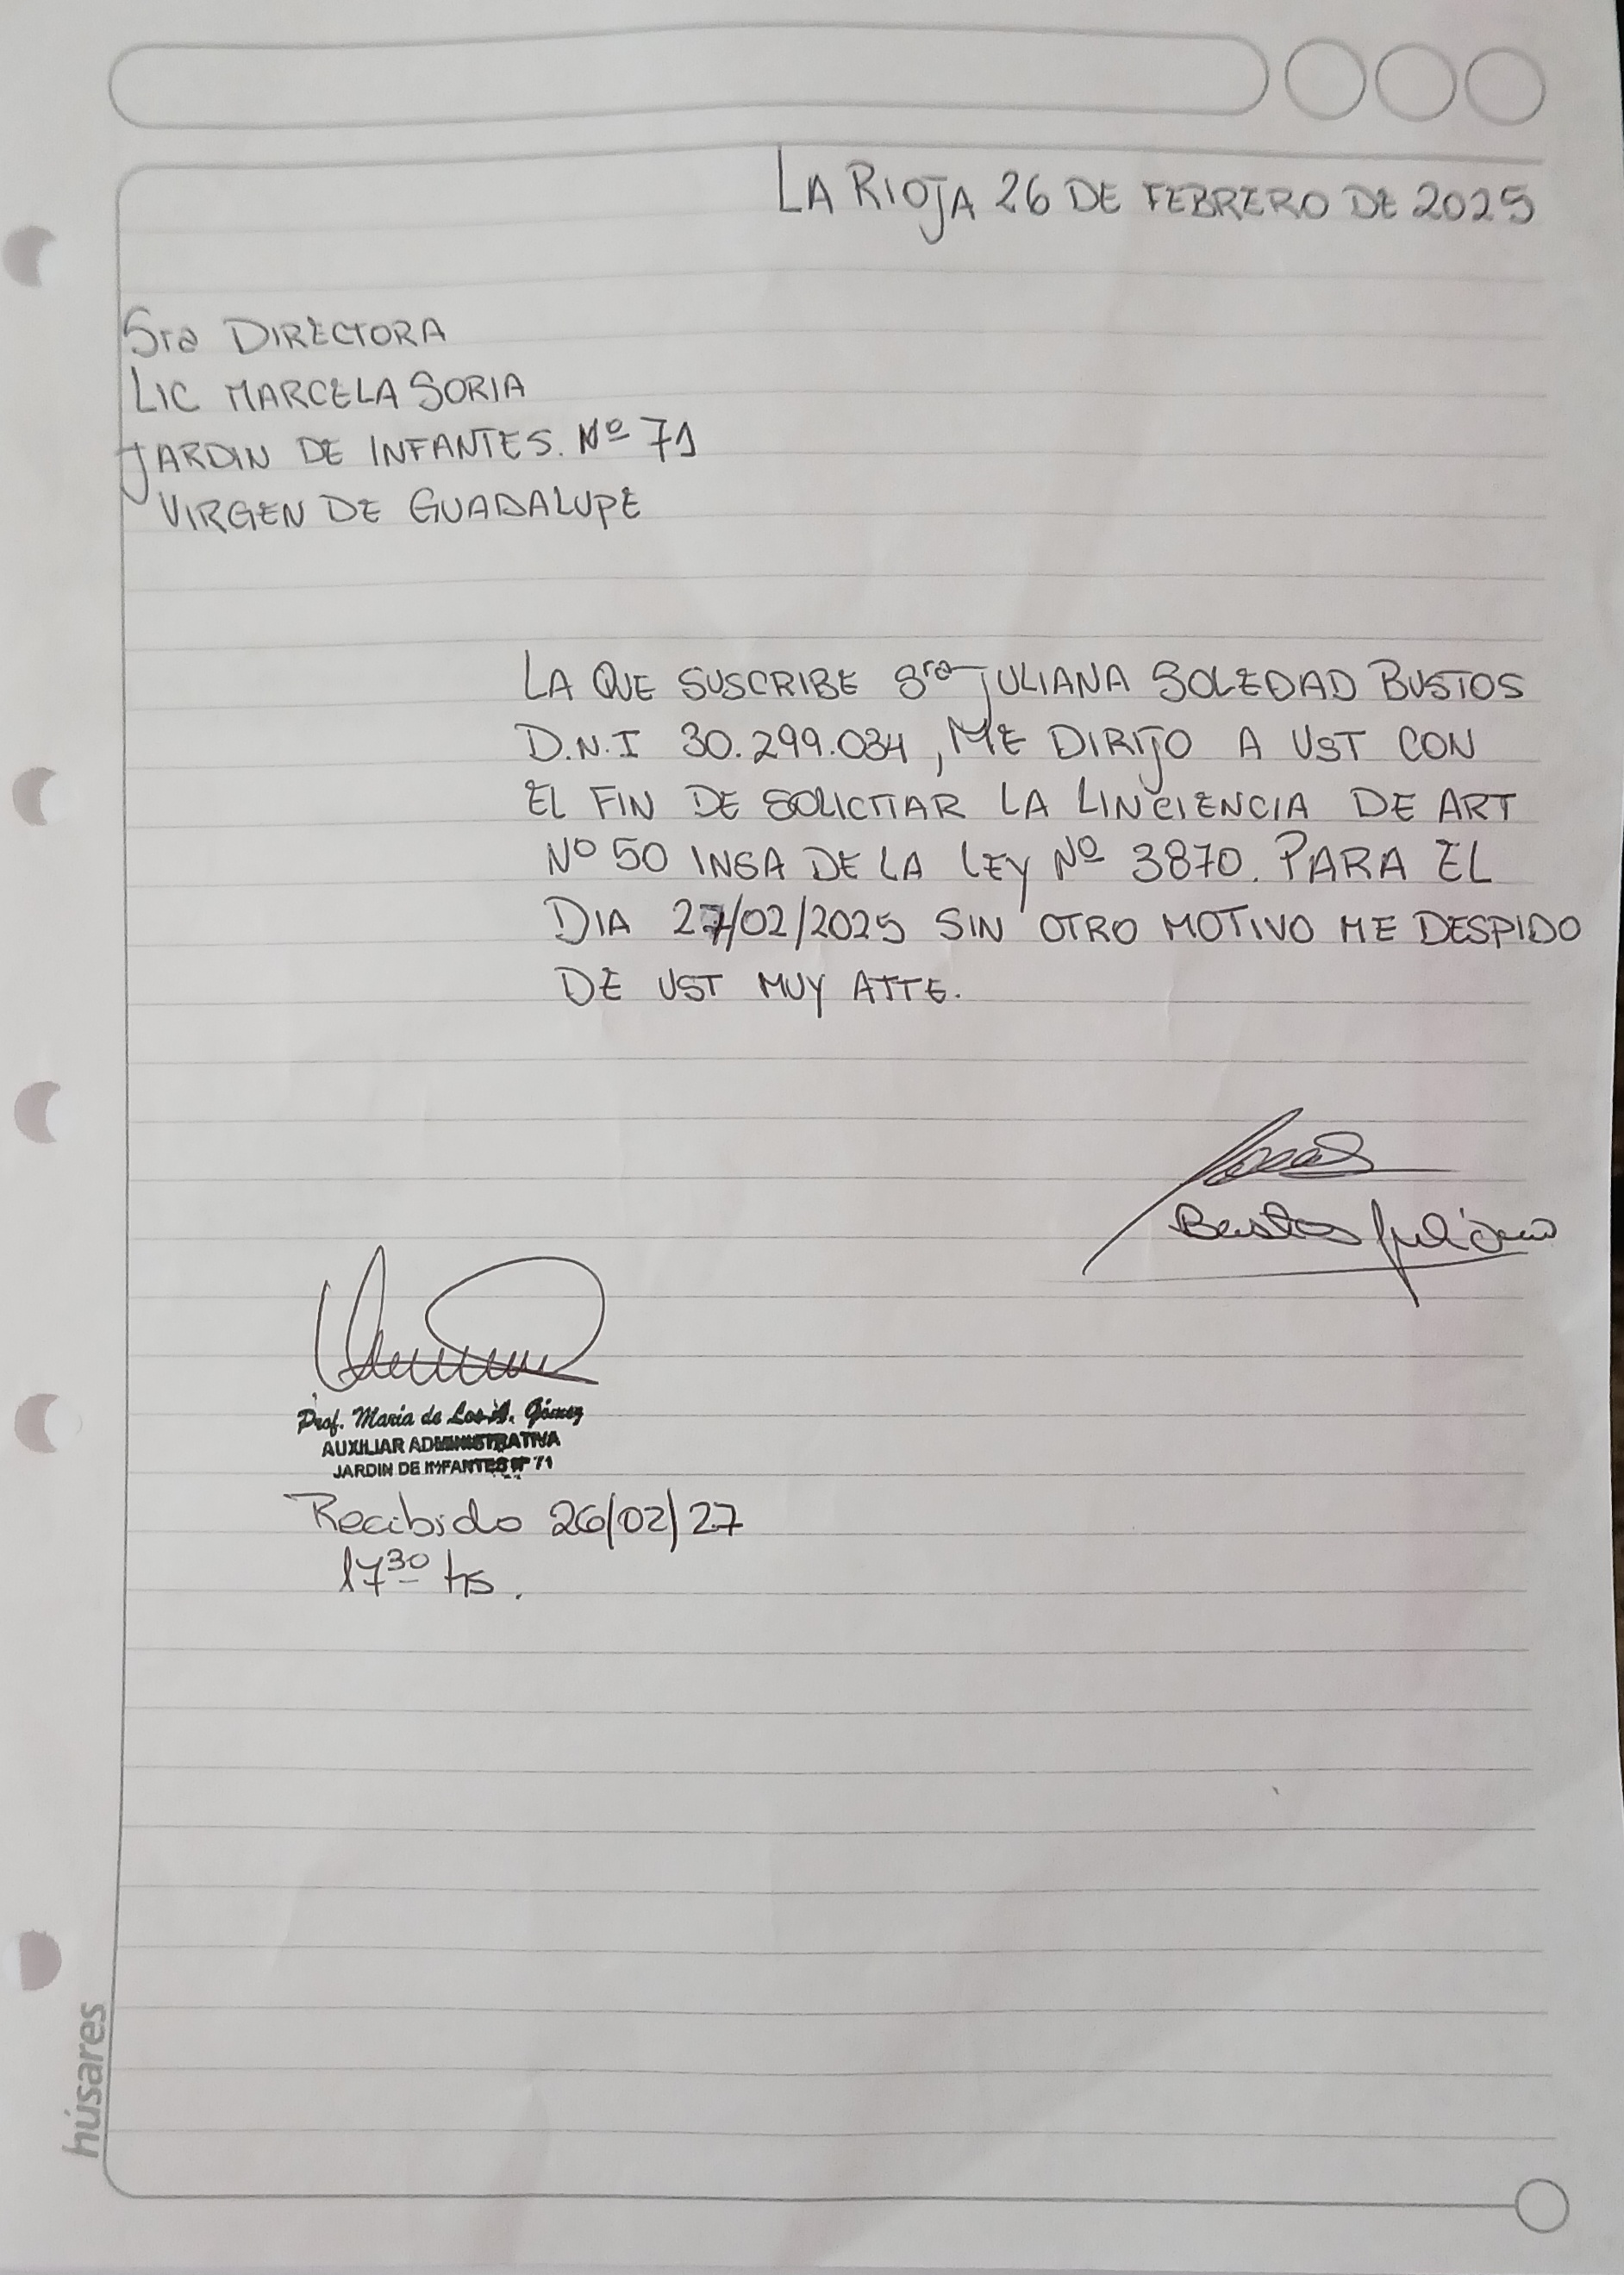 LA RIOJA 26 DE FEBRERO DE 2025
Sra DIRECTORA
LIC MARCELA SORIA
JARDIN DE INFANTES. Nº 71
VIRGEN DE GUADALUPE
LA QUE SUSCRIBE Sra JULIANA SOLEDAD BUSTOS
D.N.I 30.299.034, ME DIRIJO A UST CON
EL FIN DE SOLICTIAR LA LINCIENCIA DE ART
Nº 50 INGA DE LA LEY Nº 3870. PARA EL
DIA 27/02/2025 SIN OTRO MOTIVO ME DESPIDO
DE UST MUY ATTE.
Bustos Juliana
Prof. María de Los A. Gómez
AUXILIAR ADMINISTRATIVA
JARDIN DE INFANTES Nº 71
Recibido 26/02/27
17³⁰ hs.
húsares